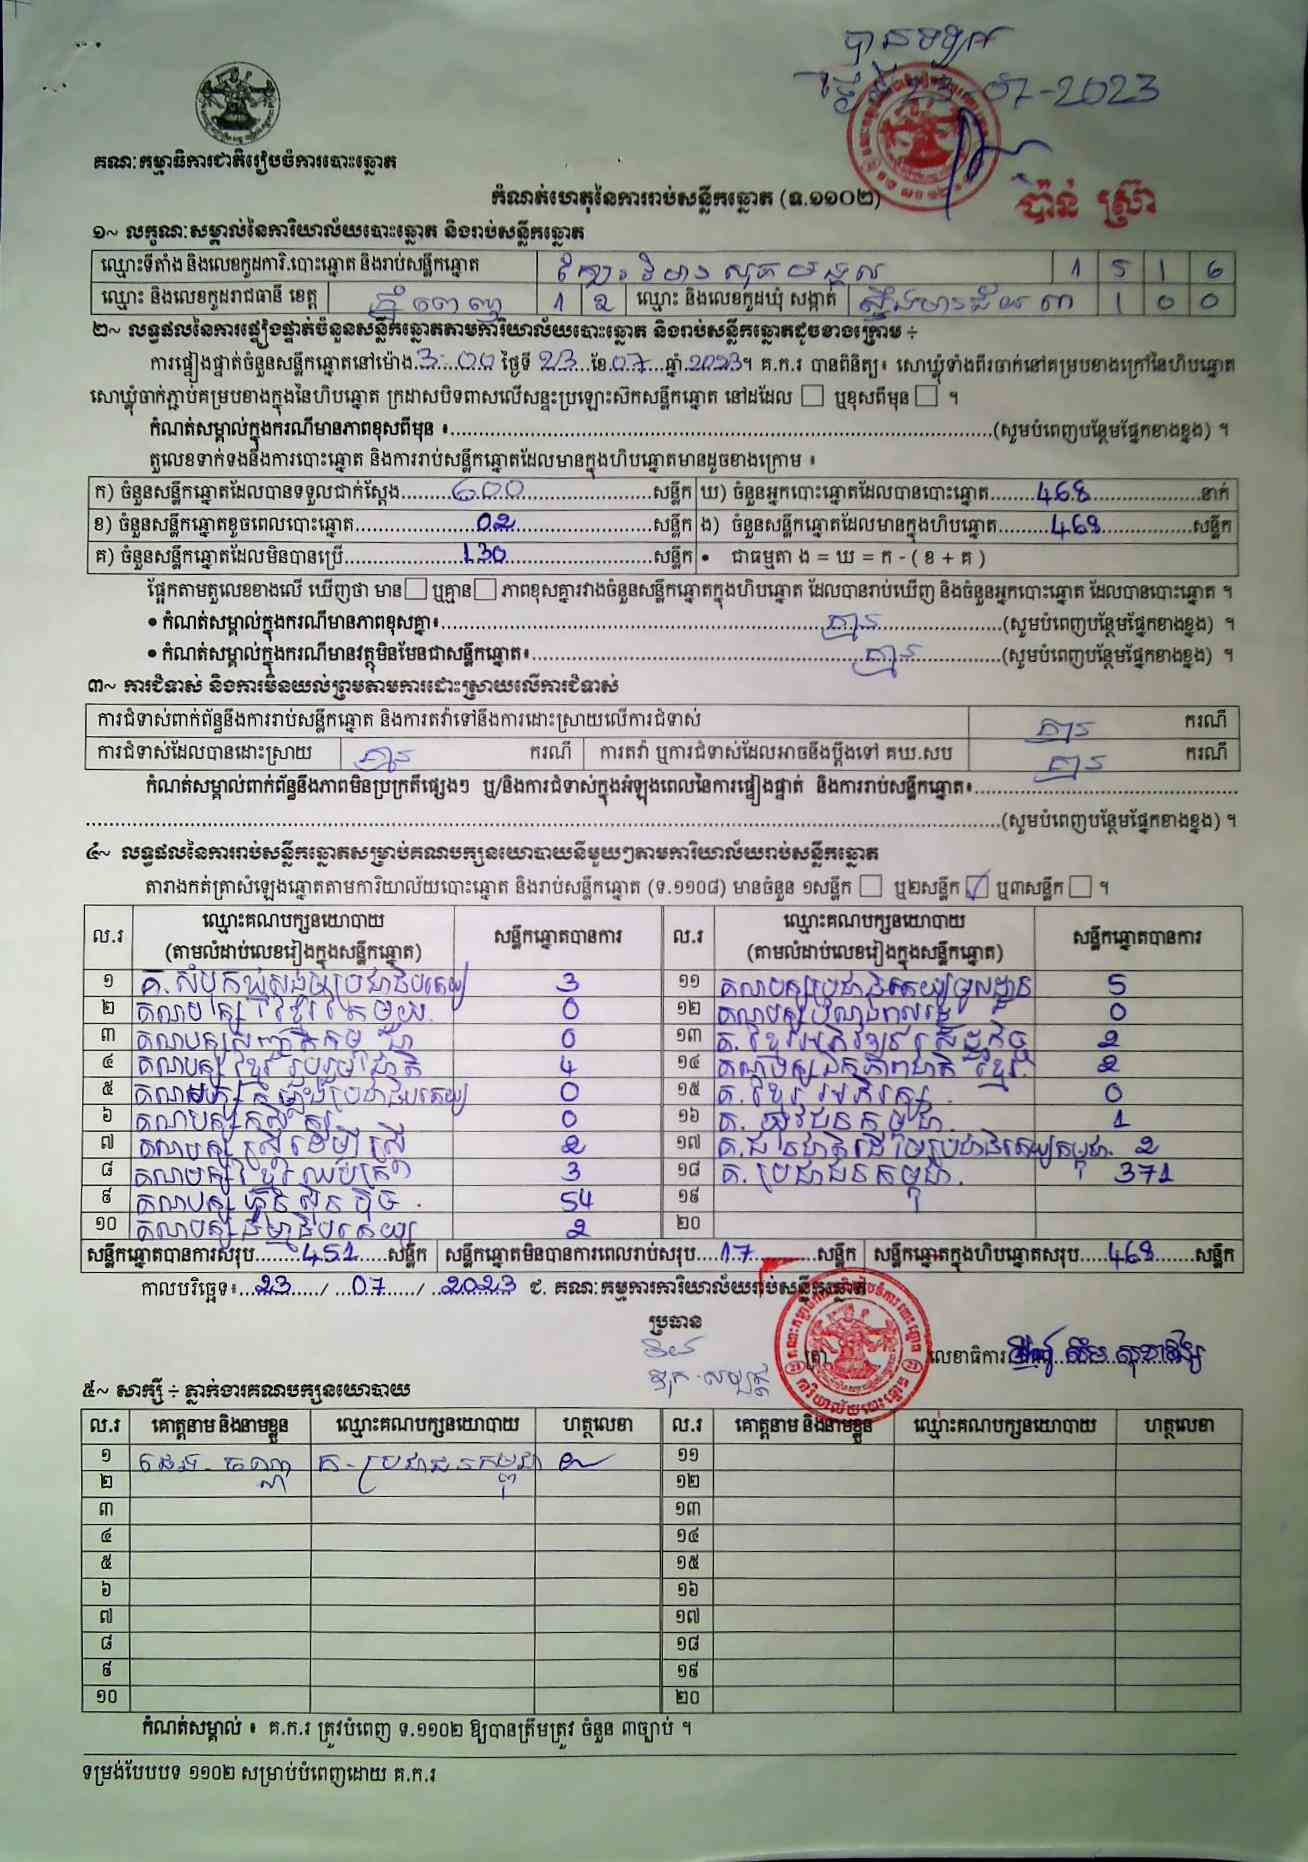 បានបិទផ្សាយ
ថ្ងៃទី 23-07-2023
គណៈកម្មាធិការជាតិរៀបចំការបោះឆ្នោត
កំណត់ហេតុនៃការរាប់សន្លឹកឆ្នោត (ទ.១១០២)
ប៉ាន់ ស្រ៊ា
១~ លក្ខណៈសម្គាល់នៃការិយាល័យបោះឆ្នោត និងរាប់សន្លឹកឆ្នោត
ឈ្មោះទីតាំង និងលេខកូដការិ.បោះឆ្នោត និងរាប់សន្លឹកឆ្នោត 1 5 1 6
ឈ្មោះ និងលេខកូដរាជធានី ខេត្ត ភ្នំពេញ 1 2 ឈ្មោះ និងលេខកូដឃុំ សង្កាត់ ស្ទឹងមានជ័យ ៣ 1 0 0
២~ លទ្ធផលនៃការផ្ទៀងផ្ទាត់ចំនួនសន្លឹកឆ្នោតតាមការិយាល័យបោះឆ្នោត និងរាប់សន្លឹកឆ្នោតដូចខាងក្រោម ÷
ការផ្ទៀងផ្ទាត់ចំនួនសន្លឹកឆ្នោតនៅម៉ោង 3:00 ថ្ងៃទី 23 ខែ 07 ឆ្នាំ 2023។ គ.ក.រ បានពិនិត្យ៖ សោឃ្លុំទាំងពីរចាក់នៅគម្របខាងក្រៅនៃហិបឆ្នោត
សោឃ្លុំចាក់ភ្ជាប់គម្របខាងក្នុងនៃហិបឆ្នោត ក្រដាសបិទពាសលើសន្ទះប្រឡោះស៊កសន្លឹកឆ្នោត នៅដដែល ☐ ឬខុសពីមុន ☐ ។
កំណត់សម្គាល់ក្នុងករណីមានភាពខុសពីមុន ៖ (សូមបំពេញបន្ថែមផ្នែកខាងខ្នង) ។
តួលេខទាក់ទងនឹងការបោះឆ្នោត និងការរាប់សន្លឹកឆ្នោតដែលមានក្នុងហិបឆ្នោតមានដូចខាងក្រោម ៖
ក) ចំនួនសន្លឹកឆ្នោតដែលបានទទួលជាក់ស្តែង 600 សន្លឹក ឃ) ចំនួនអ្នកបោះឆ្នោតដែលបានបោះឆ្នោត 468 នាក់
ខ) ចំនួនសន្លឹកឆ្នោតខូចពេលបោះឆ្នោត 02 សន្លឹក ង) ចំនួនសន្លឹកឆ្នោតដែលមានក្នុងហិបឆ្នោត 468 សន្លឹក
គ) ចំនួនសន្លឹកឆ្នោតដែលមិនបានប្រើ 130 សន្លឹក • ជាធម្មតា ង = ឃ = ក - ( ខ + គ )
ផ្អែកតាមតួលេខខាងលើ ឃើញថា មាន ☐ ឬគ្មាន ☐ ភាពខុសគ្នារវាងចំនួនសន្លឹកឆ្នោតក្នុងហិបឆ្នោត ដែលបានរាប់ឃើញ និងចំនួនអ្នកបោះឆ្នោត ដែលបានបោះឆ្នោត ។
• កំណត់សម្គាល់ក្នុងករណីមានភាពខុសគ្នា៖ គ្មាន (សូមបំពេញបន្ថែមផ្នែកខាងខ្នង) ។
• កំណត់សម្គាល់ក្នុងករណីមានវត្ថុមិនមែនជាសន្លឹកឆ្នោត៖ គ្មាន (សូមបំពេញបន្ថែមផ្នែកខាងខ្នង) ។
៣~ ការជំទាស់ និងការមិនយល់ព្រមតាមការដោះស្រាយលើការជំទាស់
ការជំទាស់ពាក់ព័ន្ធនឹងការរាប់សន្លឹកឆ្នោត និងការតវ៉ាទៅនឹងការដោះស្រាយលើការជំទាស់ គ្មាន ករណី
ការជំទាស់ដែលបានដោះស្រាយ គ្មាន ករណី ការតវ៉ា ឬការជំទាស់ដែលអាចនឹងប្តឹងទៅ គឃ.សប គ្មាន ករណី
កំណត់សម្គាល់ពាក់ព័ន្ធនឹងភាពមិនប្រក្រតីផ្សេងៗ ឬ/និងការជំទាស់ក្នុងអំឡុងពេលនៃការផ្ទៀងផ្ទាត់ និងការរាប់សន្លឹកឆ្នោត៖
(សូមបំពេញបន្ថែមផ្នែកខាងខ្នង) ។
៤~ លទ្ធផលនៃការរាប់សន្លឹកឆ្នោតសម្រាប់គណបក្សនយោបាយនីមួយៗតាមការិយាល័យរាប់សន្លឹកឆ្នោត
តារាងកត់ត្រាសំឡេងឆ្នោតតាមការិយាល័យបោះឆ្នោត និងរាប់សន្លឹកឆ្នោត (ទ.១១០៨) មានចំនួន ១សន្លឹក ☐ ឬ២សន្លឹក ☑ ឬ៣សន្លឹក ☐ ។
ល.រ ឈ្មោះគណបក្សនយោបាយ (តាមលំដាប់លេខរៀងក្នុងសន្លឹកឆ្នោត) សន្លឹកឆ្នោតបានការ ល.រ ឈ្មោះគណបក្សនយោបាយ (តាមលំដាប់លេខរៀងក្នុងសន្លឹកឆ្នោត) សន្លឹកឆ្នោតបានការ
១ គ.សំបុកឃ្មុំសង្គមប្រជាធិបតេយ្យ 3 ១១ គណបក្សប្រជាធិបតេយ្យមូលដ្ឋាន 5
២ គណបក្សខ្មែរតែមួយ 0 ១២ គណបក្ស 0
៣ គណបក្សសញ្ជាតិកម្ពុជា 0 ១៣ គ.ខ្មែរអភិវឌ្ឍន៍សេដ្ឋកិច្ច 2
៤ គណបក្សខ្មែររួបរួមជាតិ 4 ១៤ គណបក្សឯកភាពជាតិខ្មែរ 2
៥ គណបក្សកម្លាំងប្រជាធិបតេយ្យ 0 ១៥ គ.ខ្មែរអភិរក្ស 0
៦ គណបក្សកសិករ 0 ១៦ គ.យុវជនកម្ពុជា 1
៧ គណបក្សស្ត្រីដើម្បីស្ត្រី 2 ១៧ គ.ជនជាតិដើមប្រជាធិបតេយ្យកម្ពុជា 2
៨ គណបក្សខ្មែរឈប់ក្រ 3 ១៨ គ.ប្រជាជនកម្ពុជា 371
៩ គណបក្សហ៊្វុនស៊ិនប៉ិច 54 ១៩
១០ គណបក្សធម្មាធិបតេយ្យ 2 ២០
សន្លឹកឆ្នោតបានការសរុប 451 សន្លឹក សន្លឹកឆ្នោតមិនបានការពេលរាប់សរុប 17 សន្លឹក សន្លឹកឆ្នោតក្នុងហិបឆ្នោតសរុប 468 សន្លឹក
កាលបរិច្ឆេទ៖ 23 / 07 / 2023 ជ. គណៈកម្មការការិយាល័យរាប់សន្លឹកឆ្នោត
ប្រធាន
ត្រា លេខាធិការ
៥~ សាក្សី ÷ ភ្នាក់ងារគណបក្សនយោបាយ
ល.រ គោត្តនាម និងនាមខ្លួន ឈ្មោះគណបក្សនយោបាយ ហត្ថលេខា ល.រ គោត្តនាម និងនាមខ្លួន ឈ្មោះគណបក្សនយោបាយ ហត្ថលេខា
១ គ.ប្រជាជនកម្ពុជា ១១
២ ១២
៣ ១៣
៤ ១៤
៥ ១៥
៦ ១៦
៧ ១៧
៨ ១៨
៩ ១៩
១០ ២០
កំណត់សម្គាល់ ៖ គ.ក.រ ត្រូវបំពេញ ទ.១១០២ ឱ្យបានត្រឹមត្រូវ ចំនួន ៣ច្បាប់ ។
ទម្រង់បែបបទ ១១០២ សម្រាប់បំពេញដោយ គ.ក.រ